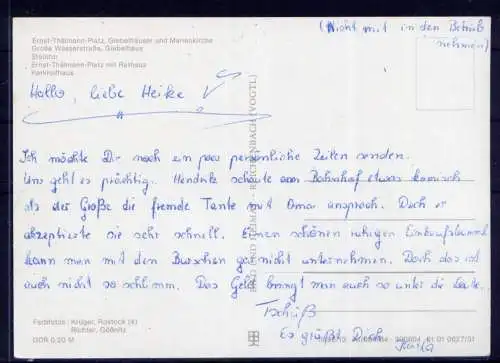 Ernst-Thälmann-Platz, Giebelhäuser und Marienkirche
Große Wasserstraße, Giebelhaus
Steintor
Ernst-Thälmann-Platz mit Rathaus
Kerkhofhaus
(Nicht mit in den Betrieb
nehmen)
Hallo, liebe Heike!
Ich möchte Dir noch ein paar persönliche Zeilen senden.
Uns geht es prächtig. Hendrik schaute am Bahnhof etwas komisch
als der Große die fremde Tante mit Oma ansprach. Doch er
akzeptierte sie sehr schnell. Einen schönen ruhigen Einkaufsbummel
kann man mit den Burschen gar nicht unternehmen. Doch das ist
auch nicht so schlimm. Das Geld bringt man auch so unter die Leute.
Tschüß
Es grüßt Dich
BILD UND HEIMAT REICHENBACH (VOGTL)
Farbfotos: Krüger, Rostock (4)
Richter, Gößnitz
DDR 0,20 M
01 01 0627/01